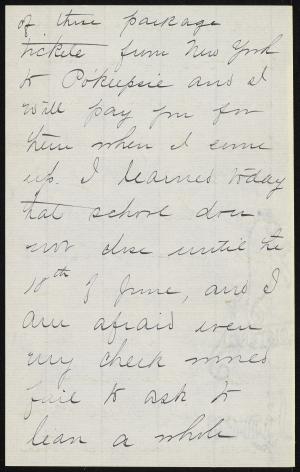 of those package
tickets from New York
to Po'keepsie and I
will pay you for
them when I come
up. I learned today
that school does
not close until the
10th of June, and I
am afraid even
my cheek would
fail to ask to
lean a whole